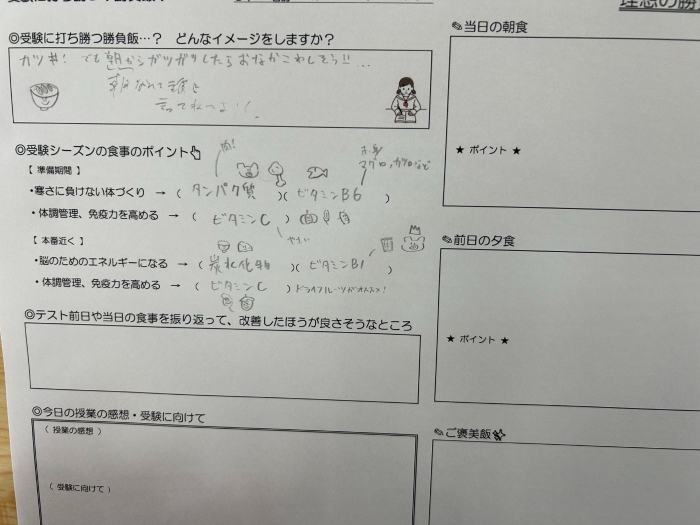 理想の勝
◎受験に打ち勝つ勝負飯…? どんなイメージをしますか?
カツ丼! でも朝からガツガツしたらおなかこわしそう!!…
朝なんて誰も
言ってねーよ!!
◎受験シーズンの食事のポイント
【 準備期間 】
肉!
お魚
マグロ、カツオなど
・寒さに負けない体づくり → ( タンパク質 )( ビタミンB6 )
・体調管理、免疫力を高める → ( ビタミンC )
やさい
【 本番近く 】
・脳のためのエネルギーになる → ( 炭水化物 )( ビタミンB1 )
・体調管理、免疫力を高める → ( ビタミンC ) ドライフルーツがオススメ!
◎テスト前日や当日の食事を振り返って、改善したほうが良さそうなところ
◎今日の授業の感想・受験に向けて
( 授業の感想 )
( 受験に向けて )
当日の朝食
★ ポイント ★
前日の夕食
★ ポイント ★
ご褒美飯